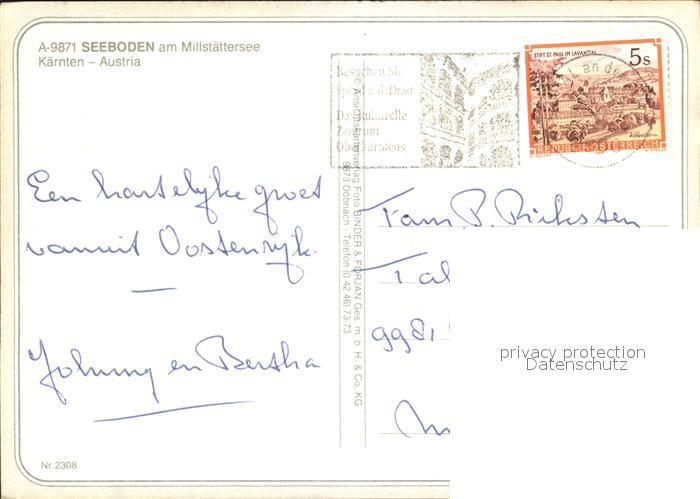 A-9871 SEEBODEN am Millstättersee
Kärnten – Austria
Besuchen Sie
Spittal a.d. Drau
Das kulturelle
Zentrum
Oberkärntens
STIFT ST. PAUL IM LAVANTTAL
5s
REPUBLIK ÖSTERREICH
Een hartelijke groet
vanuit Oostenrijk.
Johnny en Bertha
© Ansichtskartenverlag Foto BINDER & FORJAN Ges. m. b. H. & Co. KG
9873 Döbriach - Telefon (0 42 46) 73 73
Fam. P. Riksten
9981
privacy protection
Datenschutz
Nr. 2308